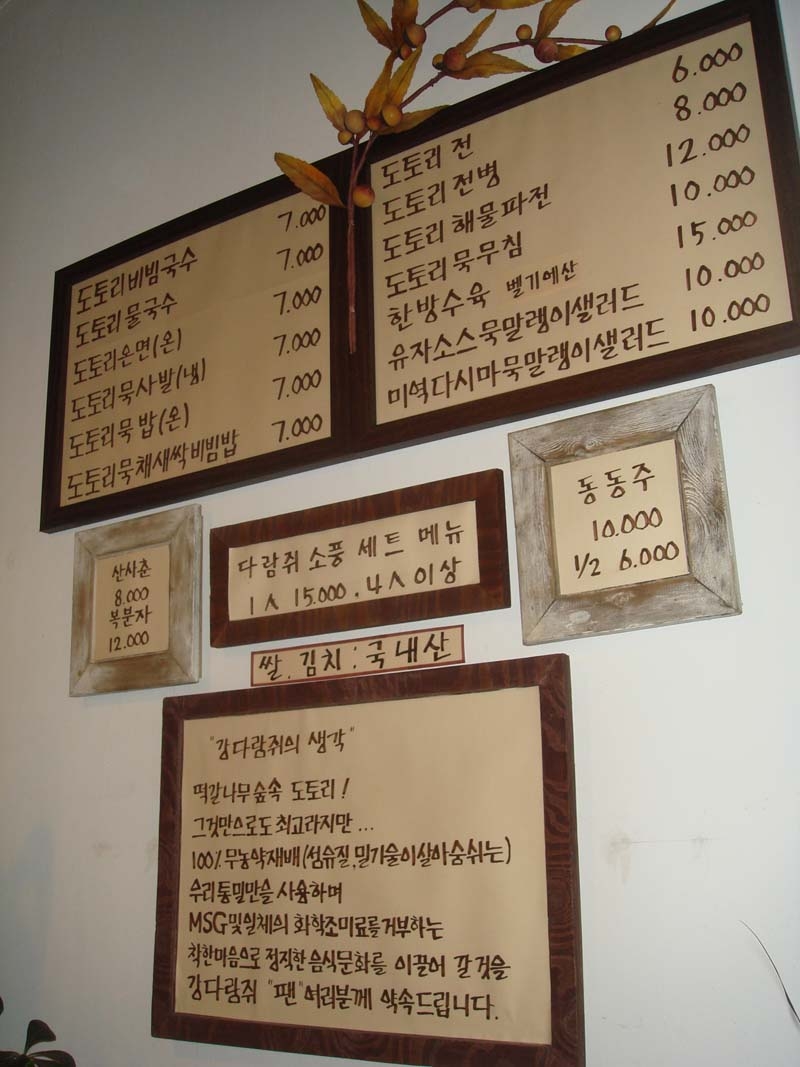 도토리비빔국수 7.000
도토리물국수 7.000
도토리온면(온) 7.000
도토리묵사발(냉) 7.000
도토리묵 밥(온) 7.000
도토리묵채새싹비빔밥 7.000
도토리 전 6.000
도토리 전병 8.000
도토리 해물파전 12.000
도토리묵무침 10.000
한방수육 벨기에산 15.000
유자소스묵말랭이샐러드 10.000
미역다시마묵말랭이샐러드 10.000
산사춘
8.000
복분자
12.000
다람쥐 소풍 세트 메뉴
1人 15.000. 4人이상
동동주
10.000
1/2 6.000
쌀. 김치 : 국내산
"강다람쥐의 생각"
떡갈나무숲속 도토리!
그것만으로도 최고라지만...
100% 무농약재배(섬유질,밀기울이살아숨쉬는)
우리통밀만을 사용하며
MSG및일체의 화학조미료를거부하는
착한마음으로 정직한 음식문화를 이끌어 갈것을
강다람쥐 "팬"여러분께 약속드립니다.